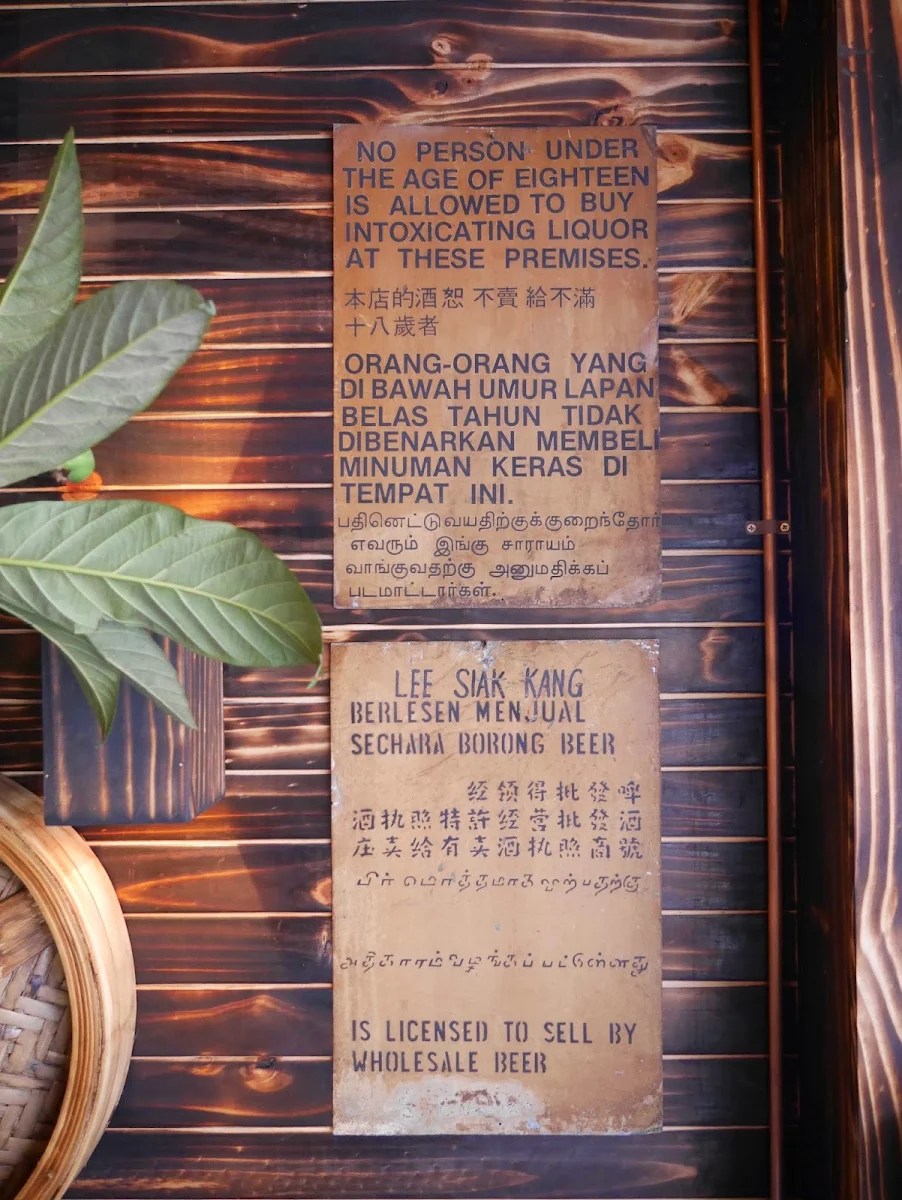 NO PERSON UNDER
THE AGE OF EIGHTEEN
IS ALLOWED TO BUY
INTOXICATING LIQUOR
AT THESE PREMISES.
本店的酒恕不賣給不滿
十八歲者
ORANG-ORANG YANG
DI BAWAH UMUR LAPAN
BELAS TAHUN TIDAK
DIBENARKAN MEMBELI
MINUMAN KERAS DI
TEMPAT INI.
பதினெட்டுவயதிற்குக்குறைந்தோர்
எவரும் இங்கு சாராயம்
வாங்குவதற்கு அனுமதிக்கப்
படமாட்டார்கள்.
LEE SIAK KANG
BERLESEN MENJUAL
SECHARA BORONG BEER
经领得批發啤
酒执照特許经营批發酒
庄卖给有卖酒执照商號
பீர் மொத்தமாக விற்பதற்கு
அதிகாரம் வழங்கப் பட்டுள்ளது
IS LICENSED TO SELL BY
WHOLESALE BEER